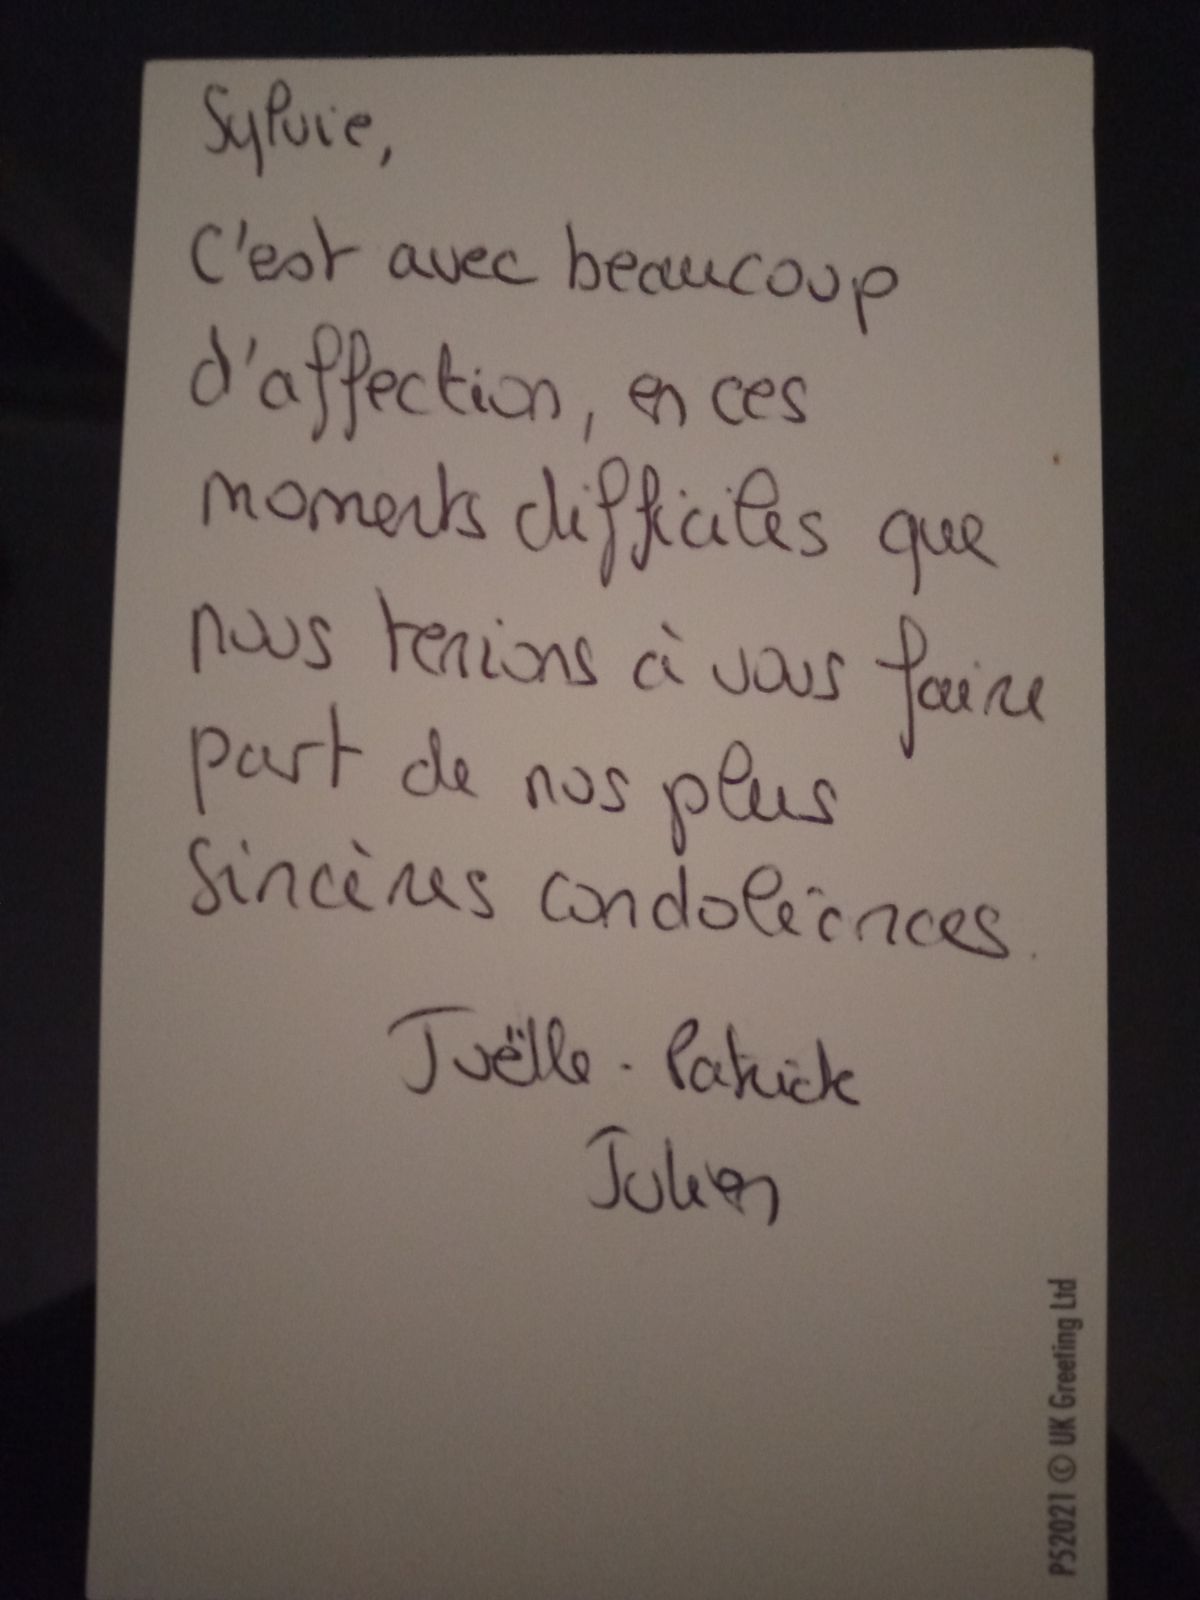 Sylvie,
C'est avec beaucoup
d'affection, en ces
moments difficiles que
nous tenions à vous faire
part de nos plus
sincères condoléances.
Joëlle - Patrick
Julien
PS2021 © UK Greeting Ltd